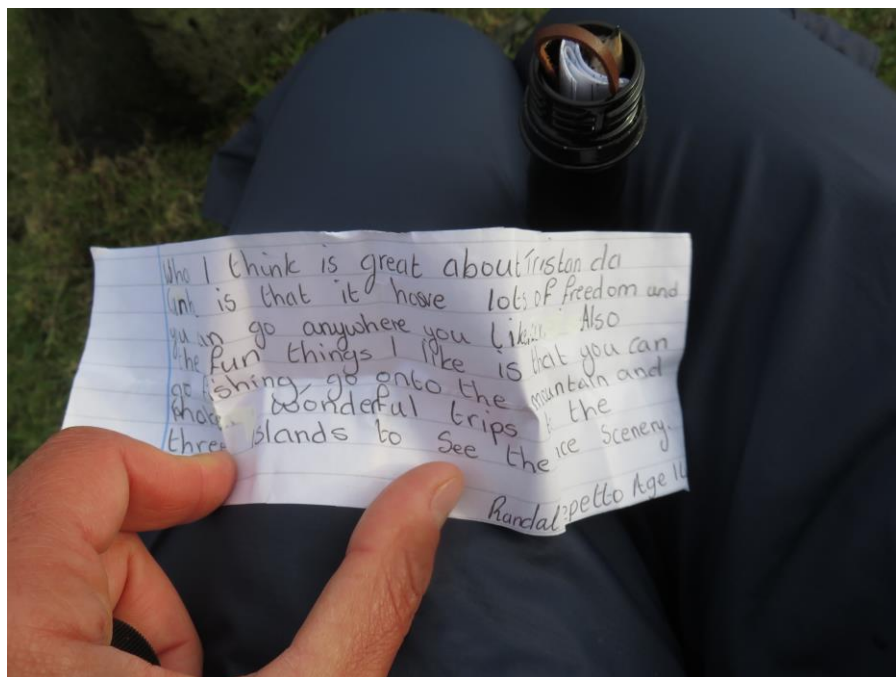 I think is great about Tristan da
is that it have lots of freedom and
go anywhere you Also
the fun things I like is that you can
go fishing, go onto the mountain and
wonderful trips the
three islands to see the Scenery.
Randal Age